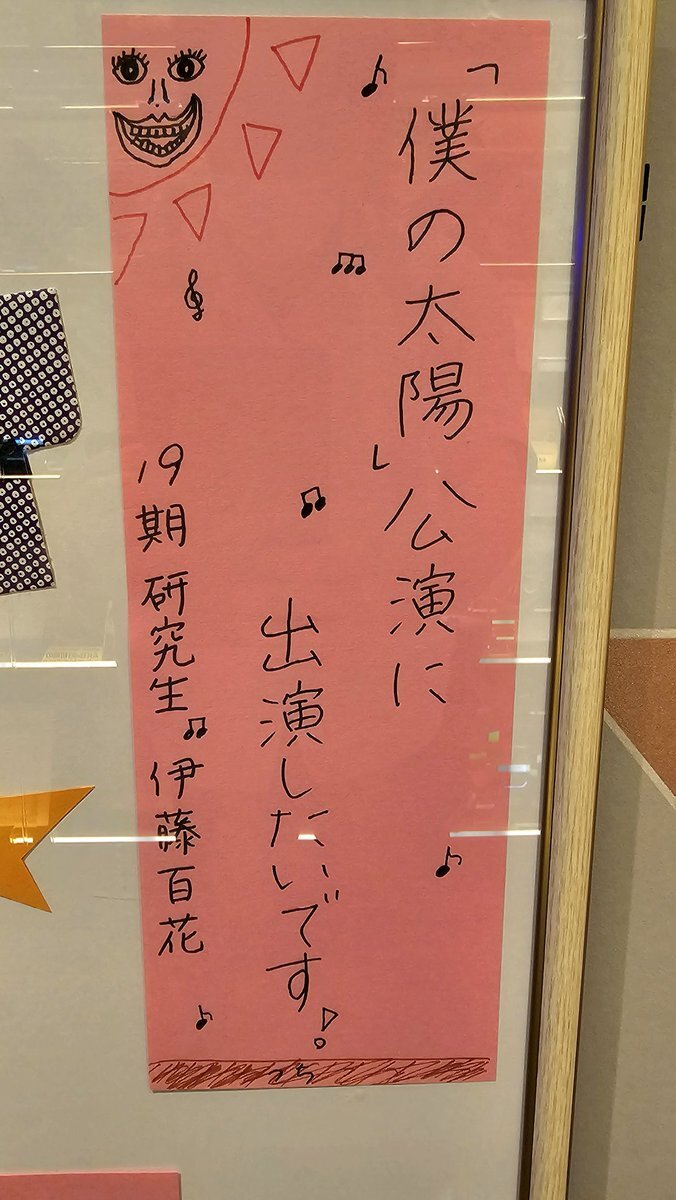 「僕の太陽」公演に
出演したいです!
19期 研究生 伊藤百花
つち